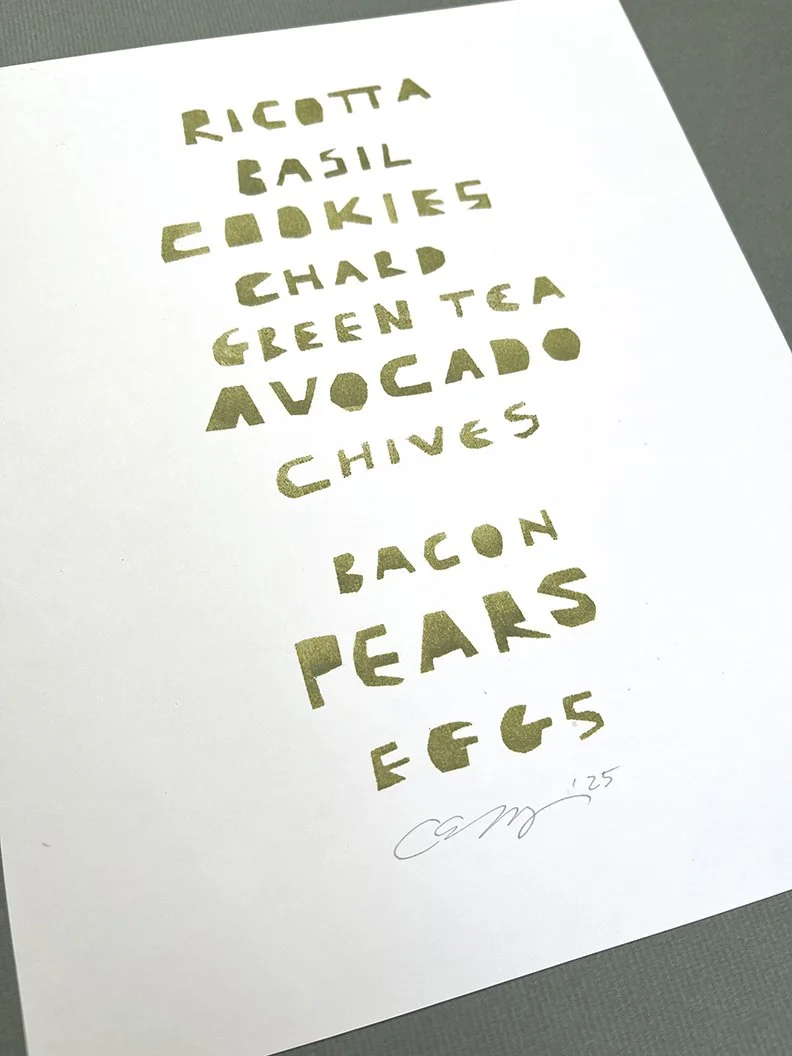 RICOTTA
BASIL
COOKIES
CHARD
GREEN TEA
AVOCADO
CHIVES
BACON
PEARS
EGGS
'25